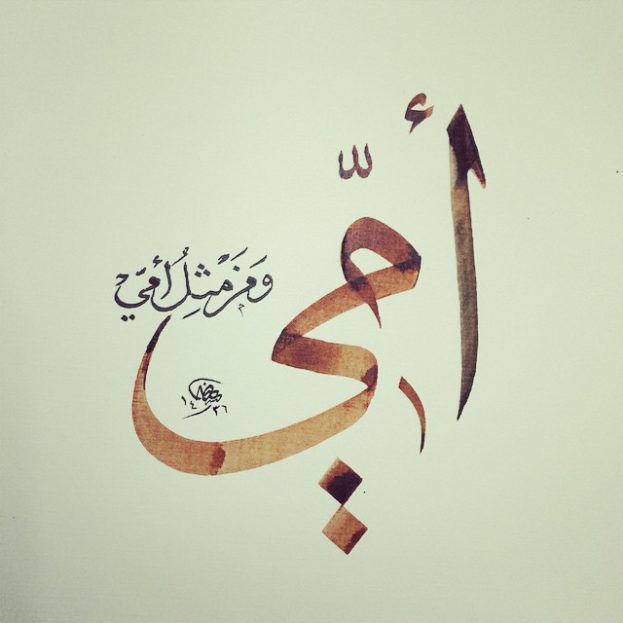 أمّي
وَمَنْ مثلُ أمّي
١٤٣٦